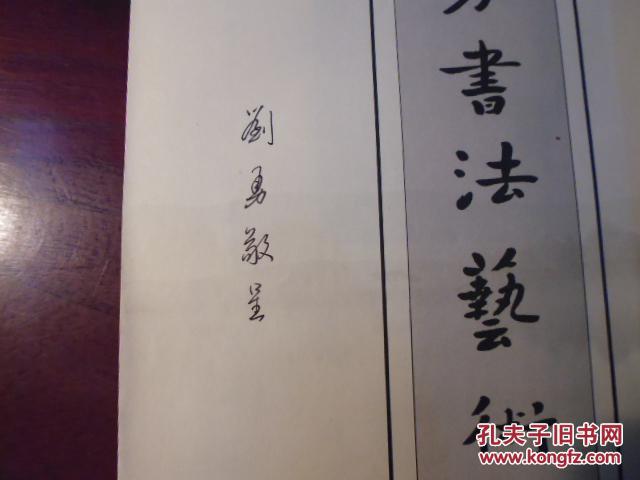 書法藝術
劉勇敬呈
孔夫子旧书网
www.kongfz.com